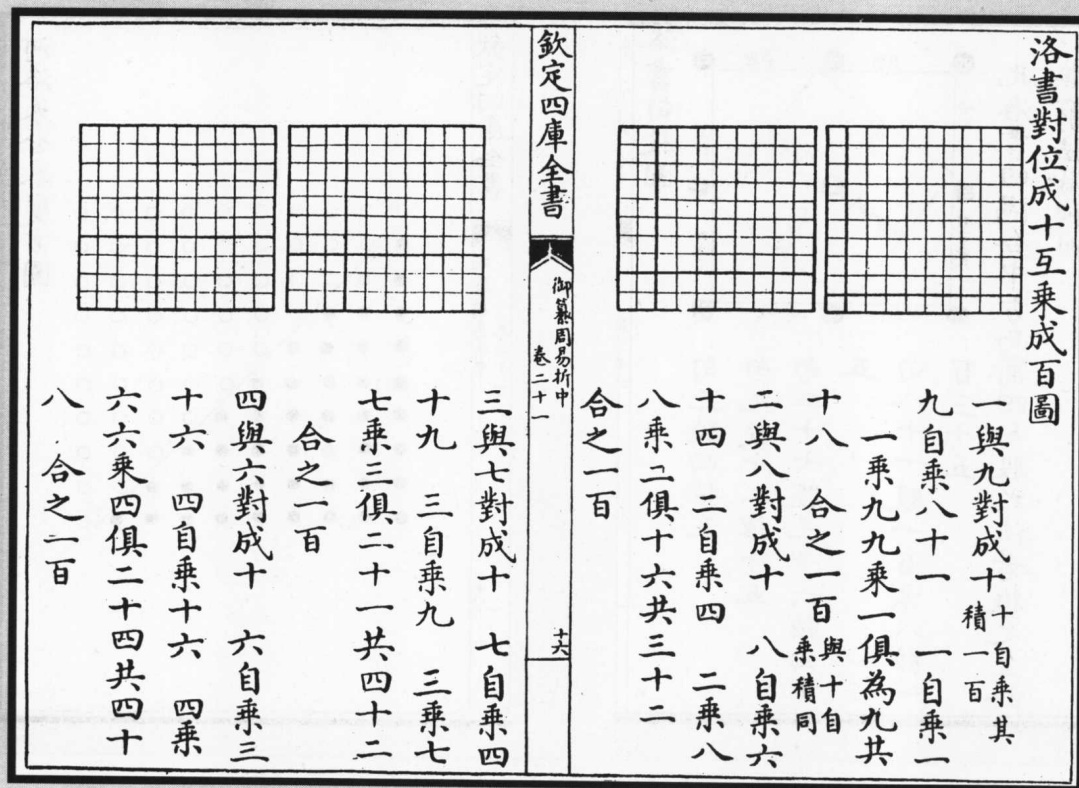 洛書對位成十互乘成百圖
一與九對成十 十自乘其積一百
九自乘八十一 一自乘一
一乘九九乘一俱為九共
十八 合之一百 與十自乘積同
二與八對成十 八自乘六
十四 二自乘四 二乘八
八乘二俱十六共三十二
合之一百
欽定四庫全書
御纂周易折中
卷二十一
十六
三與七對成十 七自乘四
十九 三自乘九 三乘七
七乘三俱二十一共四十二
合之一百
四與六對成十 六自乘三
十六 四自乘十六 四乘
六六乘四俱二十四共四十
八 合之一百